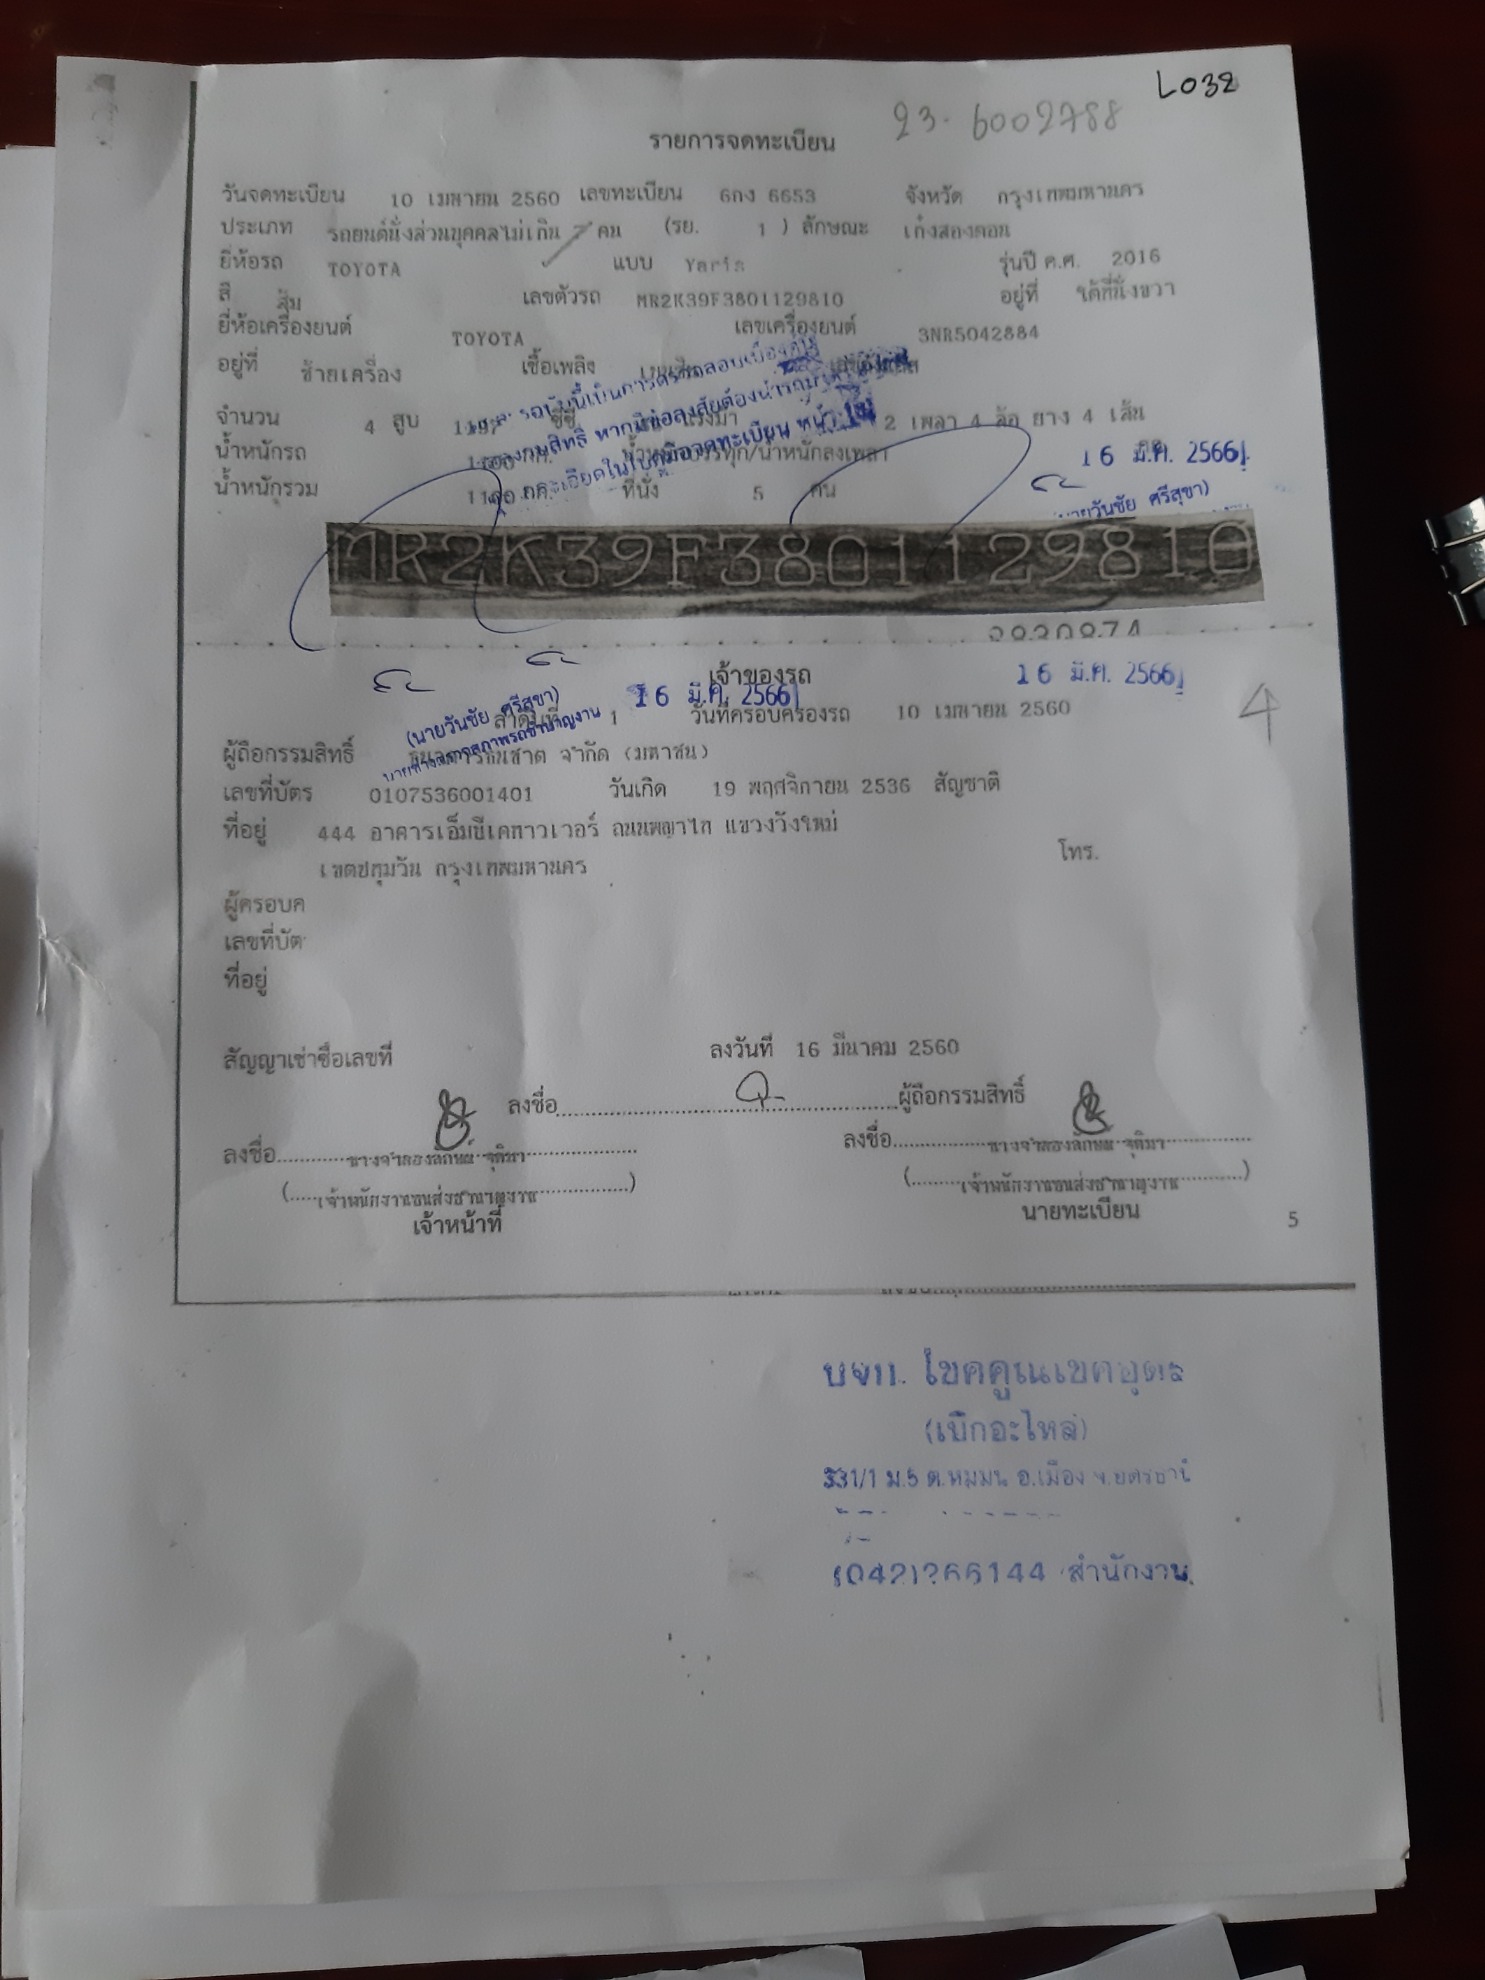 L032
23-6002788
รายการจดทะเบียน
วันจดทะเบียน 10 เมษายน 2560 เลขทะเบียน 6กง 6653 จังหวัด กรุงเทพมหานคร
ประเภท รถยนต์นั่งส่วนบุคคลไม่เกิน 7 คน (รย. 1 ) ลักษณะ เก๋งสองตอน
ยี่ห้อรถ TOYOTA แบบ Yaris รุ่นปี ค.ศ. 2016
สี ส้ม เลขตัวรถ MR2K39F3801129810 อยู่ที่ ใต้ที่นั่งขวา
ยี่ห้อเครื่องยนต์ TOYOTA เลขเครื่องยนต์ 3NR5042884
อยู่ที่ ซ้ายเครื่อง เชื้อเพลิง เบนซิน
จำนวน 4 สูบ 1197 ซีซี แรงม้า 2 เพลา 4 ล้อ ยาง 4 เส้น
น้ำหนักรถ น้ำหนักบรรทุก/น้ำหนักลงเพลา
16 มี.ค. 2566
น้ำหนักรวม ที่นั่ง 5 คน
(นายวันชัย ศรีสุขา)
MR2K39F3801129810
เจ้าของรถ
16 มี.ค. 2566
16 มี.ค. 2566
(นายวันชัย ศรีสุขา)
ลำดับที่ 1 วันที่ครอบครองรถ 10 เมษายน 2560
4
ผู้ถือกรรมสิทธิ์ ธนาคารธนชาต จำกัด (มหาชน)
เลขที่บัตร 0107536001401 วันเกิด 19 พฤศจิกายน 2536 สัญชาติ
ที่อยู่ 444 อาคารเอ็มบีเคทาวเวอร์ ถนนพญาไท แขวงวังใหม่
เขตปทุมวัน กรุงเทพมหานคร โทร.
ผู้ครอบค
เลขที่บัต
ที่อยู่
สัญญาเช่าซื้อเลขที่ ลงวันที่ 16 มีนาคม 2560
ลงชื่อ ผู้ถือกรรมสิทธิ์
ลงชื่อ นางจำลองลักษณ์ จุติมา ลงชื่อ นางจำลองลักษณ์ จุติมา
(เจ้าพนักงานขนส่งชำนาญงาน) (เจ้าพนักงานขนส่งชำนาญงาน)
เจ้าหน้าที่ นายทะเบียน
5
บจก. โชคคูณเชคอุดร
(เบิกอะไหล่)
331/1 ม.5 ต.หมูม่น อ.เมือง จ.อุดรธานี
สำนักงาน